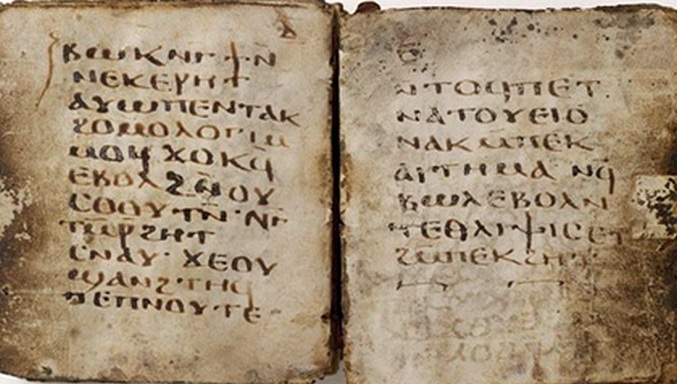 ⲃⲱⲕⲛⲅϯⲛ̄
ⲛⲉⲕⲉⲣⲏⲧ
ⲁⲩⲱⲡⲉⲛⲧⲁⲕ
ϩⲟⲙⲟⲗⲟⲅⲓⲁ
ⲙⲟϥ ϫⲟⲕϥ
ⲉⲃⲟⲗ ϩⲛ̄ⲟⲩ
ⲥⲟⲟⲩⲧⲛ·ⲛⲅ
ⲧⲙ̄ⲣϩⲏⲧ
ⲥⲛⲁⲩ· ϫⲉⲟⲩ
ϣⲁⲛϩⲧⲏϥ
ⲡⲉⲡⲛⲟⲩⲧⲉ
ⲉ
ⲛⲧⲟϥⲡⲉⲧ
ⲛⲁⲧⲟⲩⲉⲓⲟ
ⲛⲁⲕⲙ̄ⲡⲉⲕ
ⲁⲓⲧⲏⲙⲁ ⲛϥ
ⲃⲱⲗⲉⲃⲟⲗⲛ
ⲧⲉⲑⲗⲓⲯⲓⲥⲉⲧ
ϩⲙ̄ⲡⲉⲕϩⲏⲧ